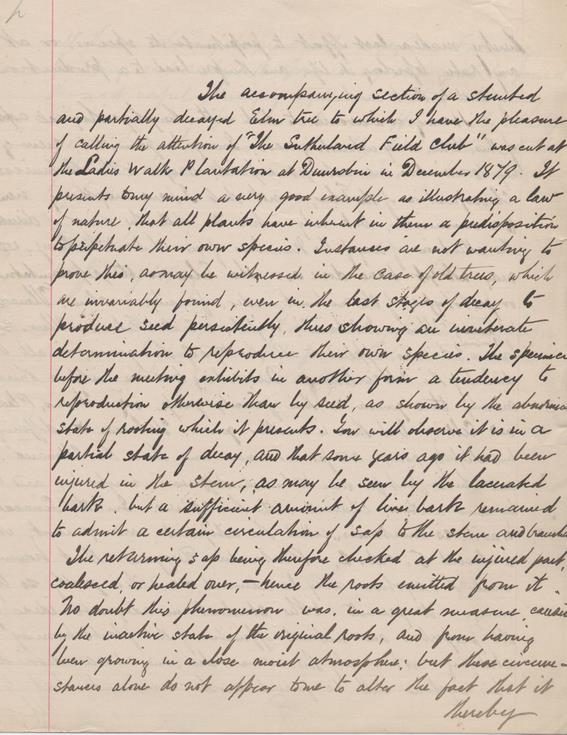 The accompanying section of a stunted
and partially decayed Elm tree to which I have the pleasure
of calling the attention of "The Sutherland Field Club" was cut at
the Ladies Walk Plantation at Dunrobin in December 1879. It
presents to my mind a very good example as illustrating a law
of nature, that all plants have inherent in them a predisposition
to perpetuate their own species. Instances are not wanting to
prove this, as may be witnessed in the case of old trees, which
are invariably found, even in the last stages of decay to
produce seed persistently, thus showing an inveterate
determination to reproduce their own species. The specimen
before the meeting exhibits in another form a tendency to
reproduction otherwise than by seed, as shown by the abnormal
state of rooting which it presents. You will observe it is in a
partial state of decay, and that some years ago it had been
injured in the stem, as may be seen by the lacerated
bark. but a sufficient amount of liver bark remained
to admit a certain circulation of sap to the stem and branches
The returning sap being therefore checked at the injured part,
coalesced, or healed over, – hence the roots emitted from it.
No doubt this phenomenon was, in a great measure, caused
by the inactive state of the original roots, and from having
been growing in a close moist atmosphere; but these circum-
stances alone do not appear to me to alter the fact that it
thereby